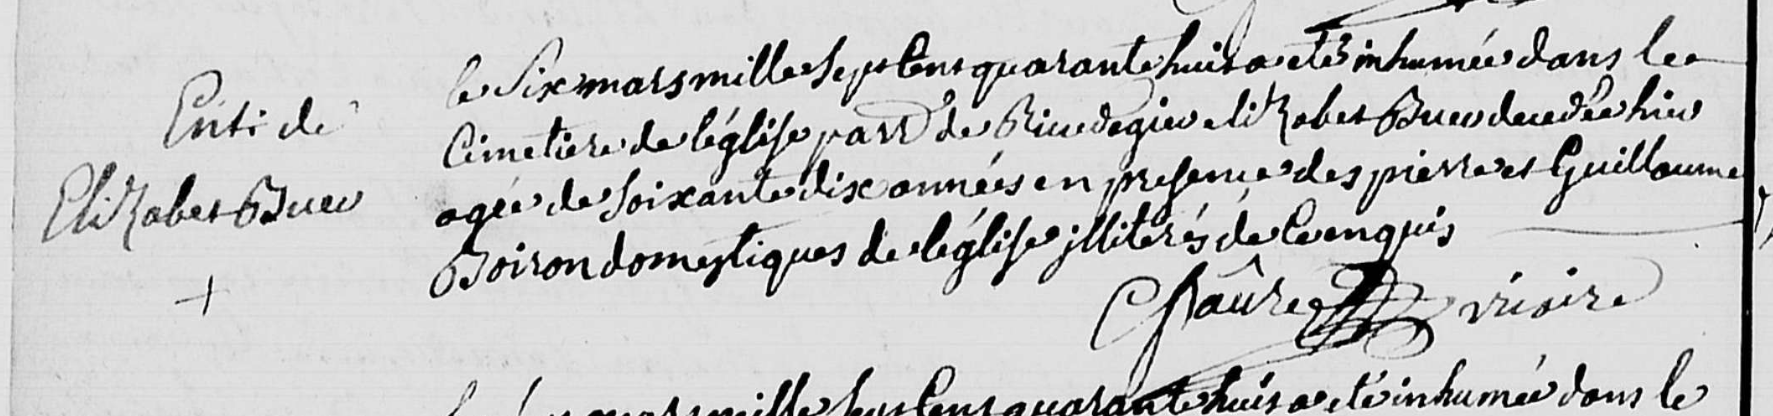 Enti de
EliZabet Buer
+
le Six mars mille Sept Cent quarante huit a eté inhumée dans le
Cimetiere de léglise parr de Rive de gier eliZabet Buer decedée hier
agée de Soixante dix années en presence des pierre et Guillaume
Boiron domestiques de léglise jlliterés de ce enquis
Chaûre vicaire
mars mille Sept Cent quarante huit a eté inhumée dans le